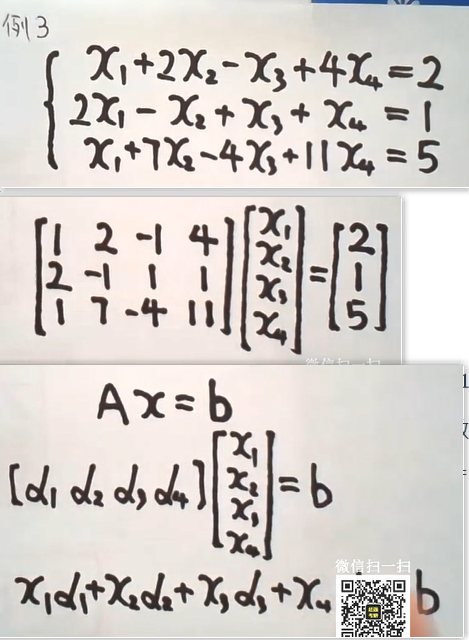 例3
x₁+2x₂-x₃+4x₄=2
2x₁-x₂+x₃+x₄=1
x₁+7x₂-4x₃+11x₄=5
[1 2 -1 4] [x₁] [2]
[2 -1 1 1] [x₂] = [1]
[1 7 -4 11] [x₃] [5]
[x₄]
Ax=b
[α₁ α₂ α₃ α₄] [x₁ x₂ x₃ x₄] = b
微信扫一扫
x₁α₁+x₂α₂+x₃α₃+x₄ b